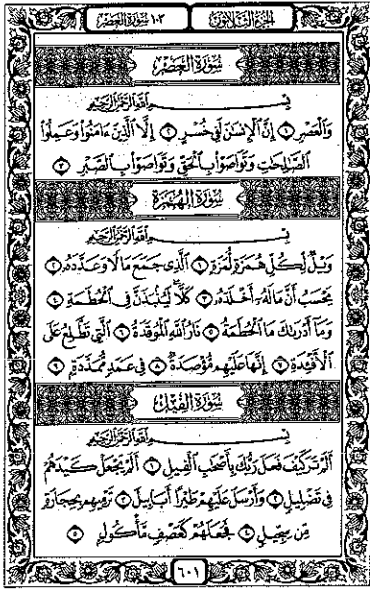 الجزء الثلاثون
١٠٣ سورة العصر
سُورَةُ الْعَصْرِ
بِسْمِ اللَّهِ الرَّحْمَٰنِ الرَّحِيمِ
وَالْعَصْرِ ١ إِنَّ الْإِنسَانَ لَفِي خُسْرٍ ٢ إِلَّا الَّذِينَ ءَامَنُوا وَعَمِلُوا
الصَّالِحَاتِ وَتَوَاصَوْا بِالْحَقِّ وَتَوَاصَوْا بِالصَّبْرِ ٣
سُورَةُ الْهُمَزَةِ
بِسْمِ اللَّهِ الرَّحْمَٰنِ الرَّحِيمِ
وَيْلٌ لِّكُلِّ هُمَزَةٍ لُّمَزَةٍ ١ الَّذِي جَمَعَ مَالًا وَعَدَّدَهُ ٢
يَحْسَبُ أَنَّ مَالَهُ أَخْلَدَهُ ٣ كَلَّا لَيُنبَذَنَّ فِي الْحُطَمَةِ ٤
وَمَا أَدْرَىٰكَ مَا الْحُطَمَةُ ٥ نَارُ اللَّهِ الْمُوقَدَةُ ٦ الَّتِي تَطَّلِعُ عَلَى
الْأَفْئِدَةِ ٧ إِنَّهَا عَلَيْهِم مُّؤْصَدَةٌ ٨ فِي عَمَدٍ مُّمَدَّدَةٍ ٩
سُورَةُ الْفِيلِ
بِسْمِ اللَّهِ الرَّحْمَٰنِ الرَّحِيمِ
أَلَمْ تَرَ كَيْفَ فَعَلَ رَبُّكَ بِأَصْحَابِ الْفِيلِ ١ أَلَمْ يَجْعَلْ كَيْدَهُمْ
فِي تَضْلِيلٍ ٢ وَأَرْسَلَ عَلَيْهِمْ طَيْرًا أَبَابِيلَ ٣ تَرْمِيهِم بِحِجَارَةٍ
مِّن سِجِّيلٍ ٤ فَجَعَلَهُمْ كَعَصْفٍ مَّأْكُولٍ ٥
٦٠١